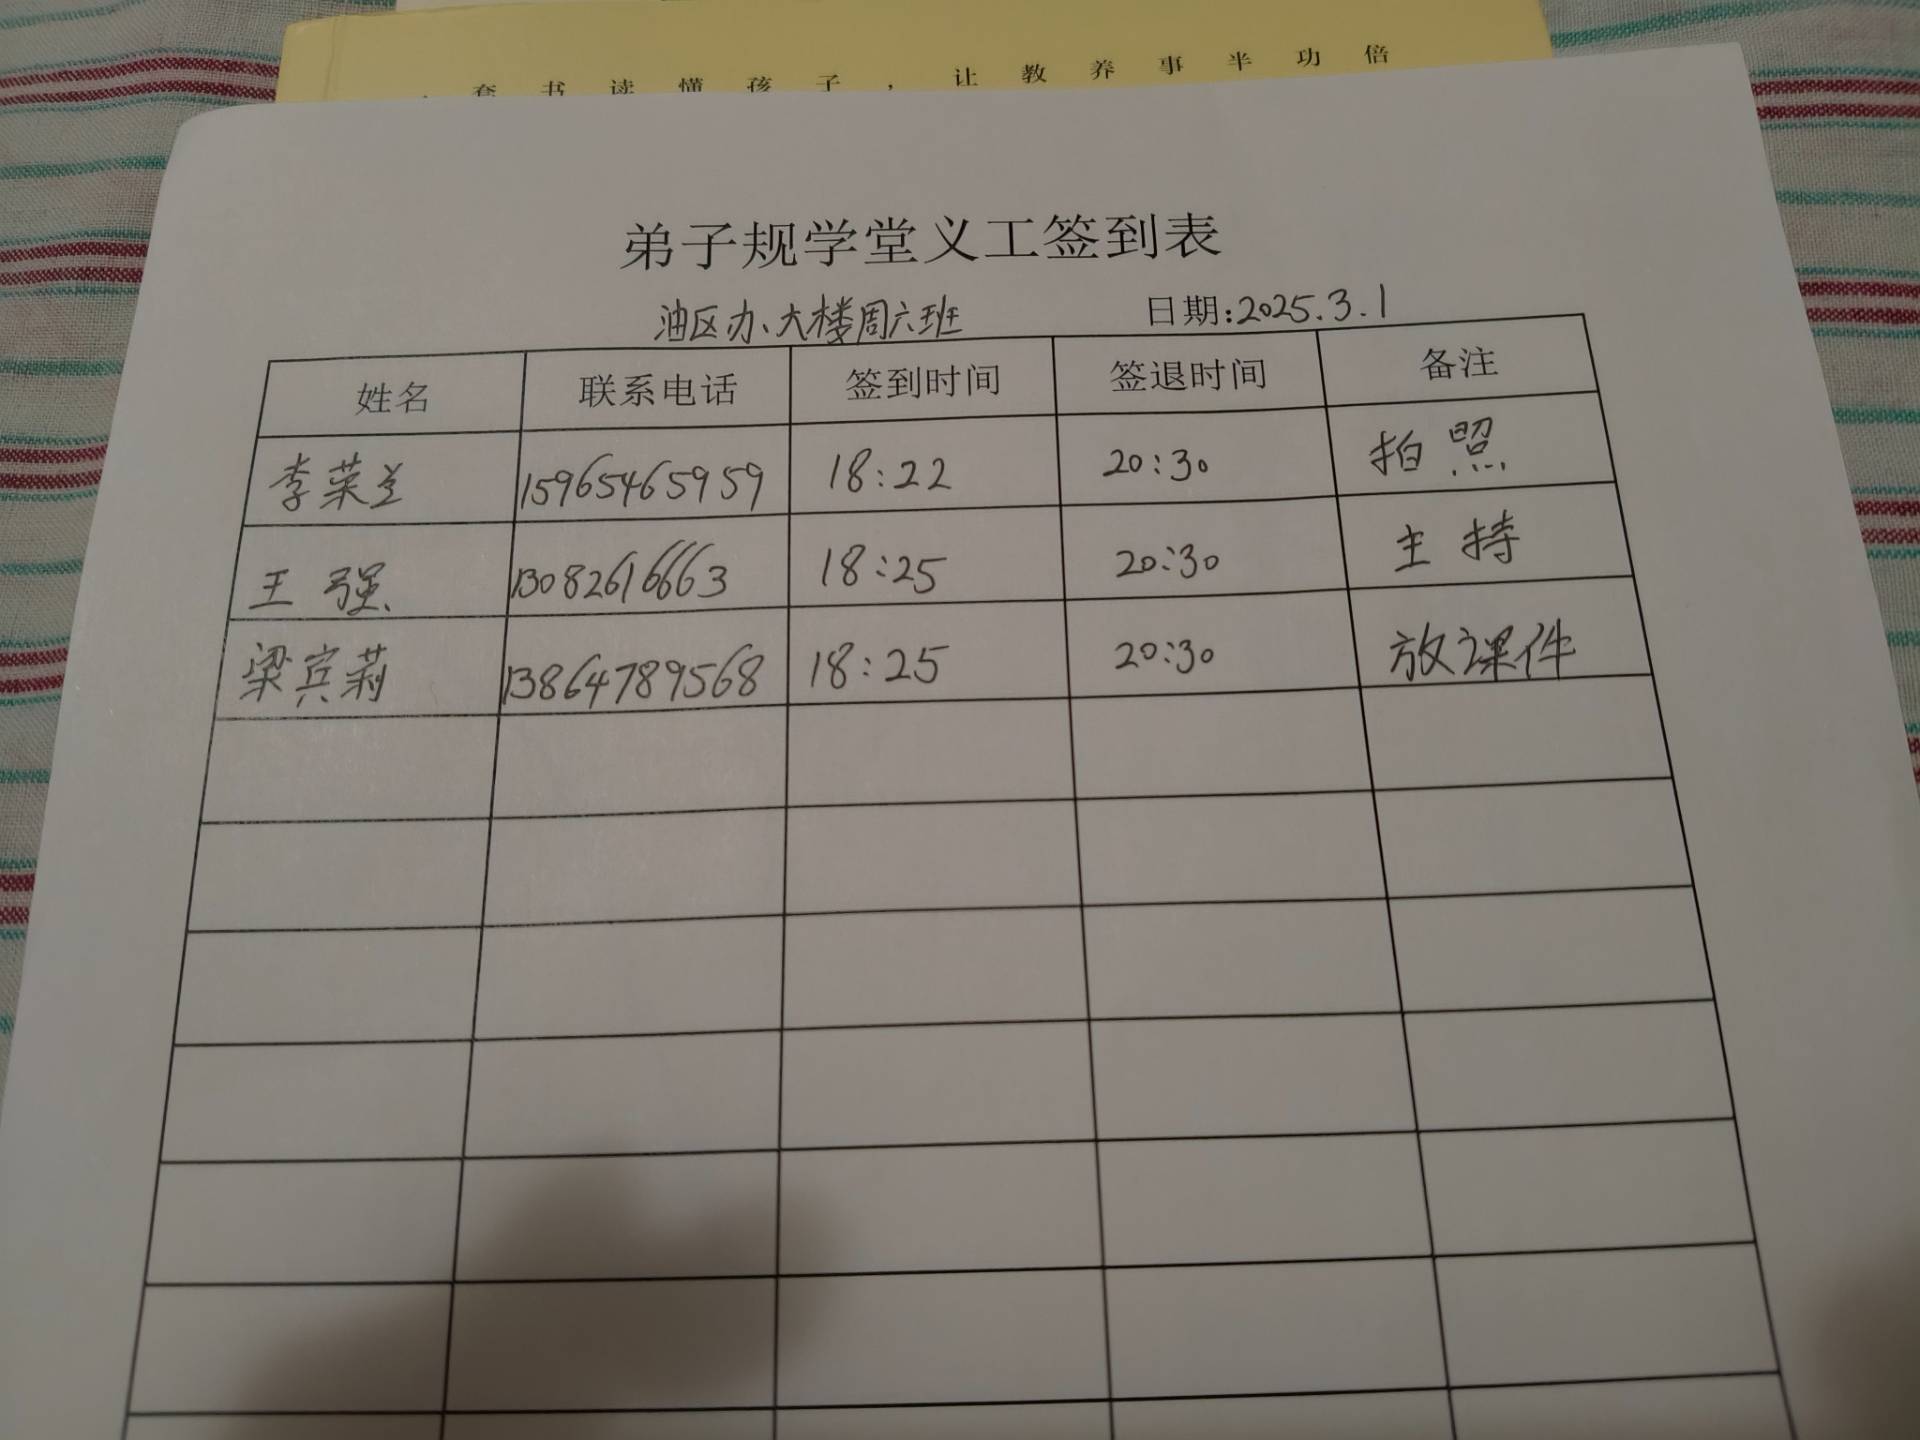 套书读懂孩子，让教养事半功倍
弟子规学堂义工签到表
油区办、大楼周六班 日期:2025.3.1
姓名 联系电话 签到时间 签退时间 备注
李荣兰 15965465959 18:22 20:30 拍照
王强 13082616663 18:25 20:30 主持
梁宾莉 13864789568 18:25 20:30 放课件